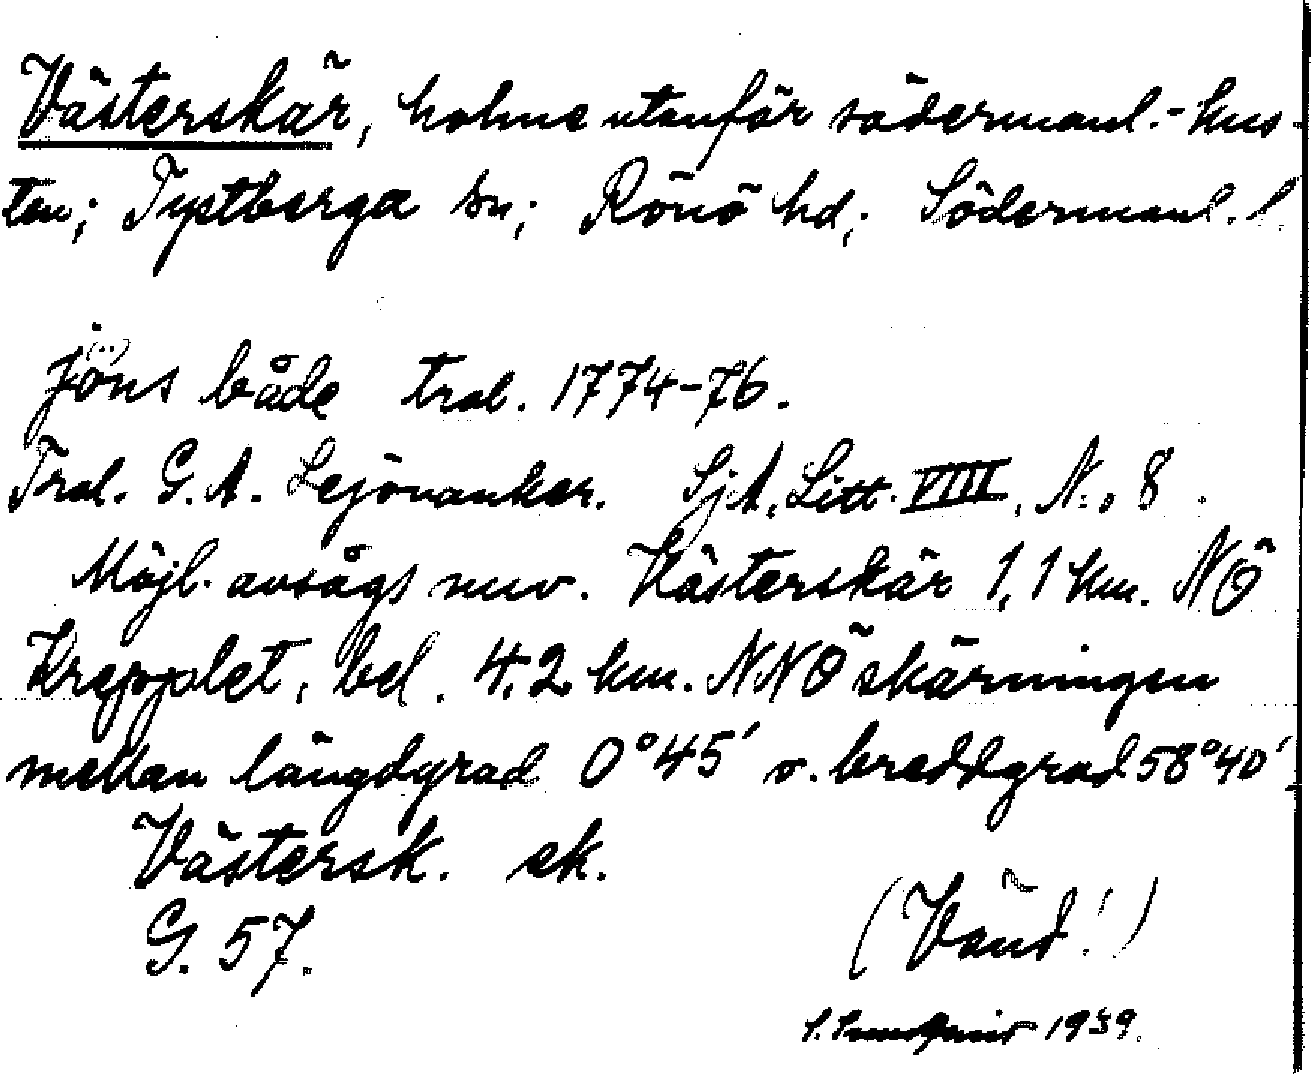 Västerskär, holme utanför södermanl.-kus-
ten; Tystberga sn; Rönö hd; Södermanl. l.
jöns både tral. 1774-76.
Tral. G. A. Lejonanker. SjA, Litt. VIII, N:o 8.
Möjl. avsågs nuv. Västerskär 1,1 km. NÖ
Krepplet, bel. 4,2 km. NNÖ skärningen
mellan längdgrad 0°45′ o. breddgrad 58°40′.
Västersk. ek.
G. 57.
(Vänd!)
1939.